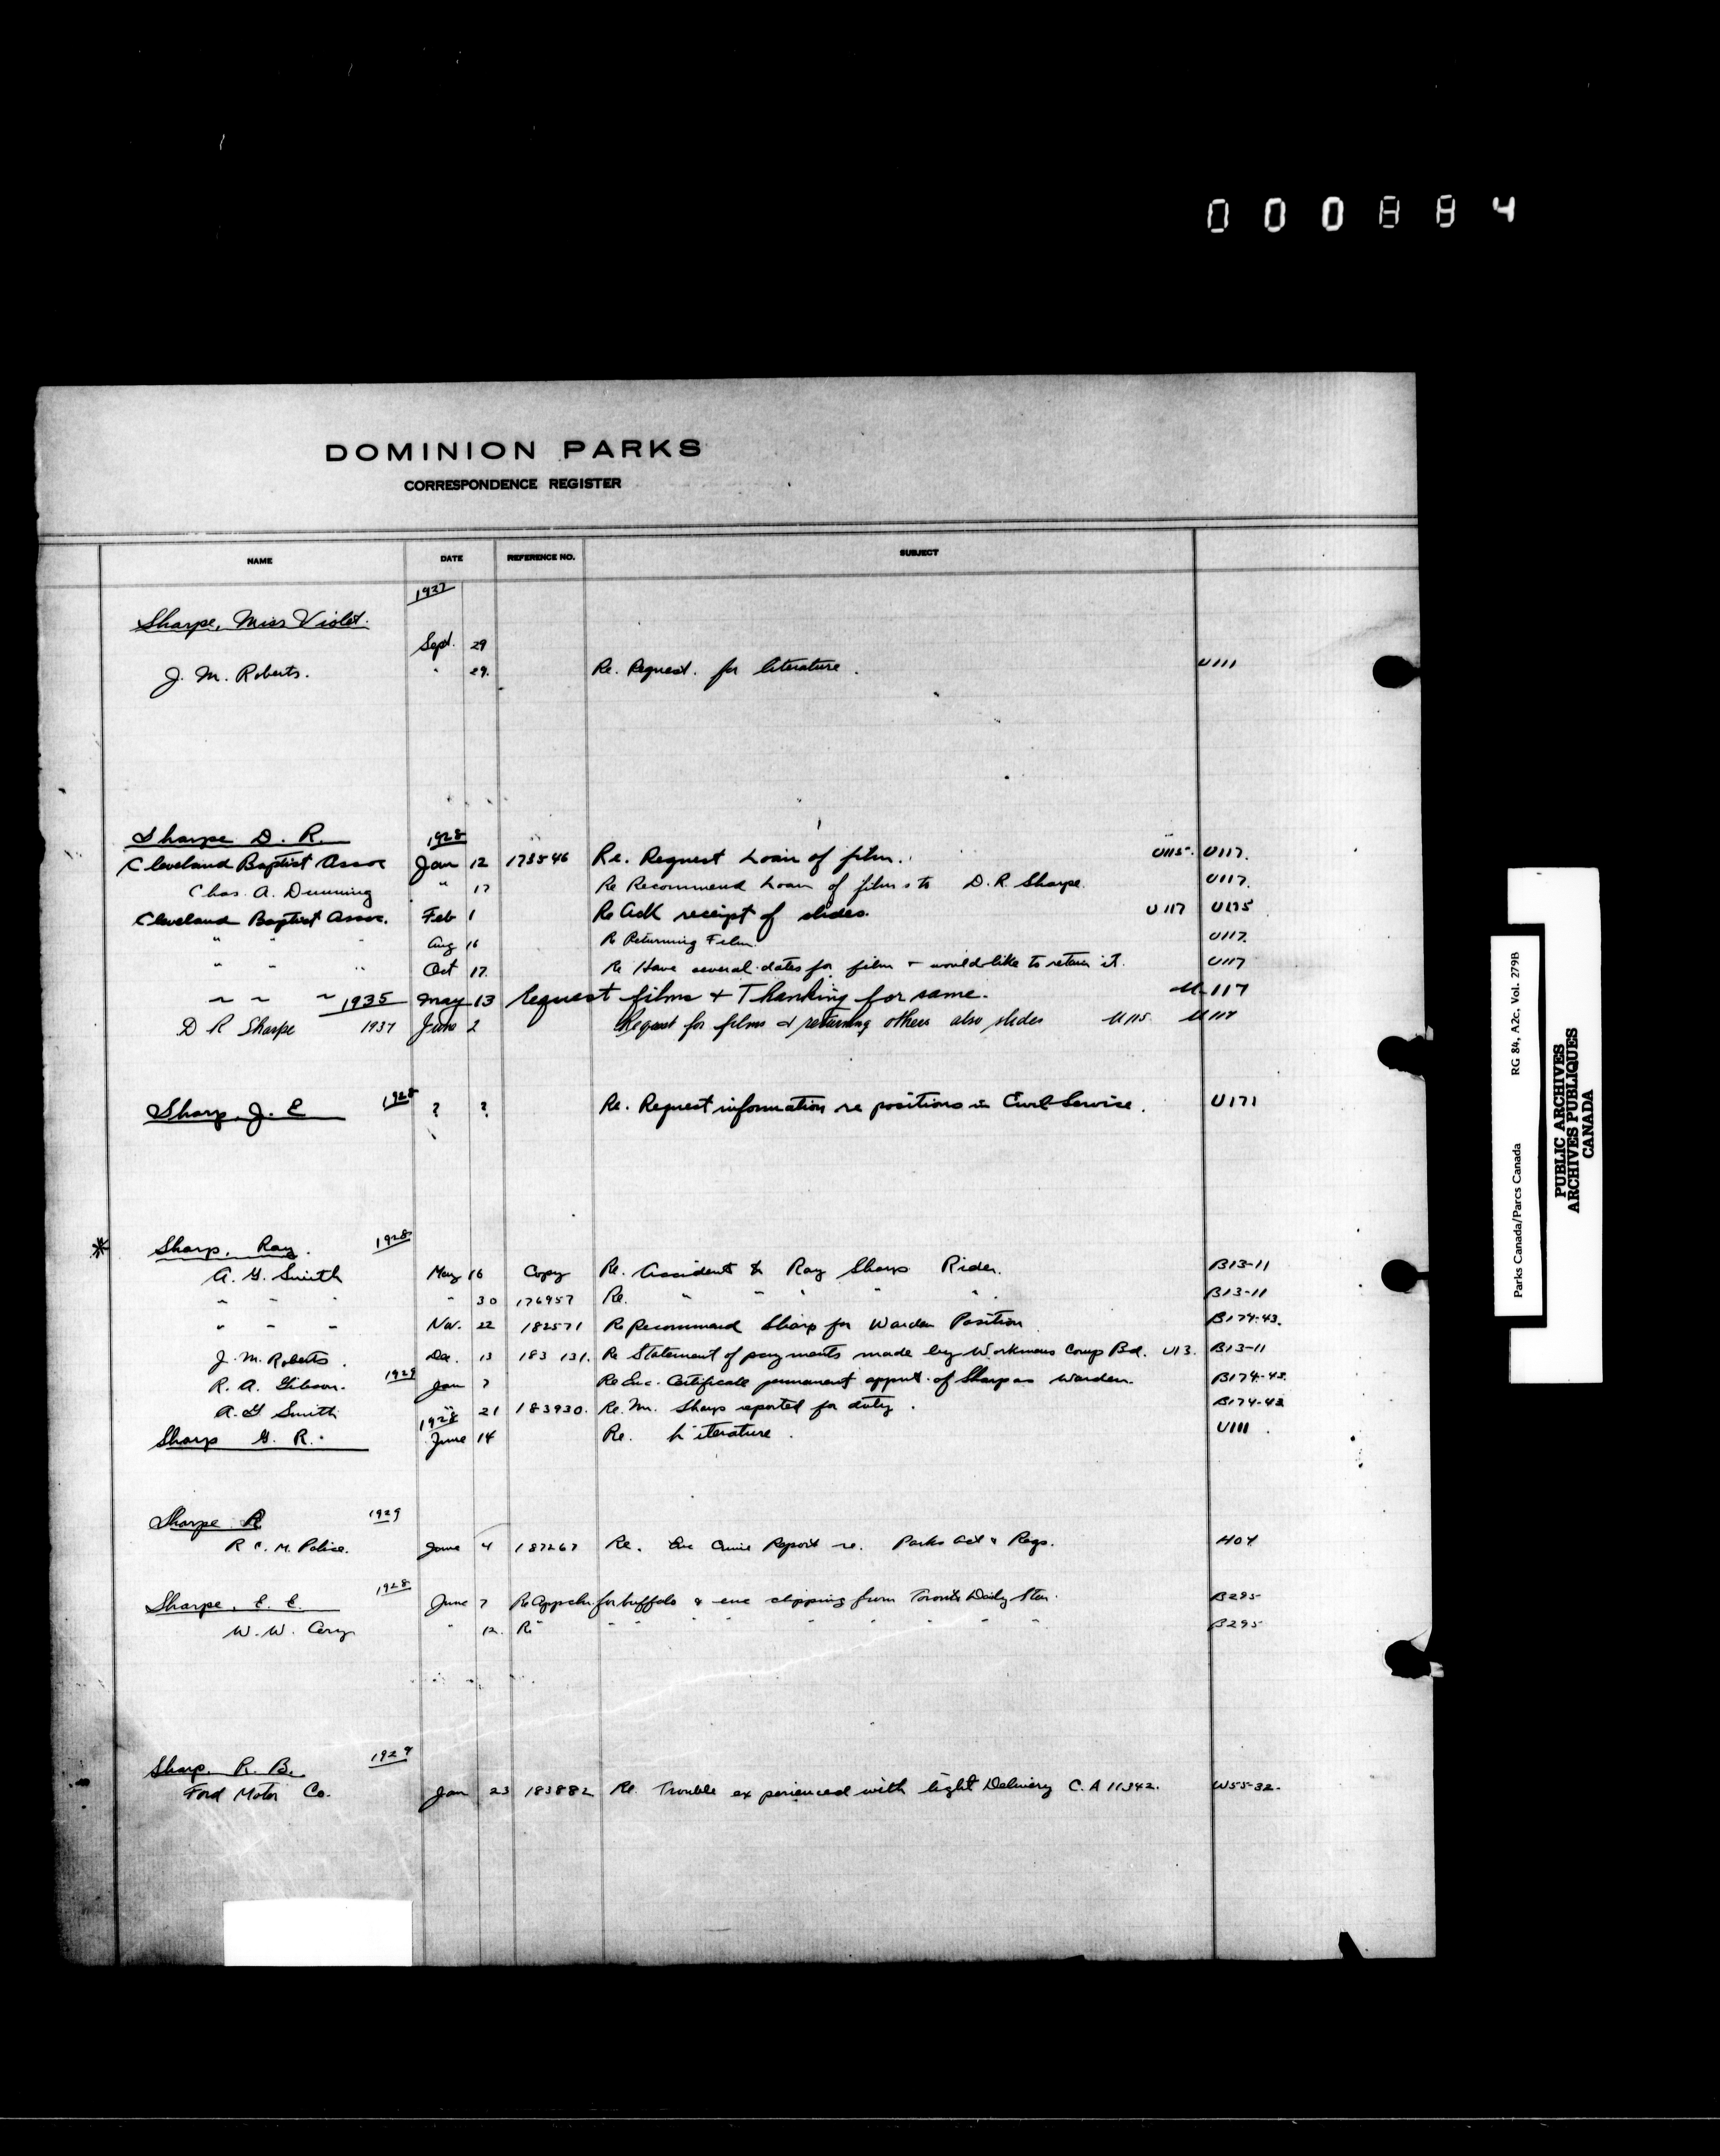 000884
DOMINION PARKS
CORRESPONDENCE REGISTER
NAME DATE REFERENCE NO. SUBJECT
1937
Sharpe, Miss Violet.
Sept. 29
J. M. Roberts. " 29. Re. Request. for literature. U111
Sharpe D. R. 1928
Cleveland Baptist Assoc Jan 12 173546 Re. Request Loan of film. U115. U117.
Chas. A. Dunning " 17 Re Recommend Loan of films to D.R. Sharpe. U117.
Cleveland Baptist Assoc. Feb 1 Re Ack receipt of slides. U117 U115
" " Aug 16 Re Returning Film. U117.
" " " Oct 17. Re Have several dates for film + would like to return it. U117
~ ~ ~ 1935 May 13 Request films + Thanking for same. U-117
D R Sharpe 1937 June 2 Request for films & returning others also slides U115 U117
Sharp, J. E 1928 ? ? Re. Request information re positions in Civil Service. U171
* Sharp, Ray. 1928
A. G. Smith May 16 Copy Re. Accident to Ray Sharp Rider. B13-11
" " " " 30 176957 Re. " " " " " B13-11
" " " Nov. 22 182571 Re Recommend Sharp for Warden Position B174-43.
J. M. Roberts. Dec. 13 183131. Re Statement of payments made by Workmens Comp Bd. U13. B13-11
R. A. Gibson. 1929 Jan 7 Re Enc. Certificate permanent appmt. of Sharp as Warden. B174-43.
A. G Smith " 21 183930. Re. Mr. Sharp reported for duty. B174-43
Sharp G. R. 1928 June 14 Re. Literature. U111.
Sharpe R 1929
R. C. M. Police. June 4 187267 Re. Enc Crime Report re. Parks Act & Regs. H04
Sharpe, E. E. 1928 June 7 Re for buffalo & enc clipping from Toronto Daily Star. B295
W. W. Cory " 12. Re " " " " " " " " B295
Sharp. R. B. 1929
Ford Motor Co. Jan 23 183882 Re. Trouble experienced with light Delivery C.A 11342. W55-32.
Parks Canada/Parcs Canada RG 84, A2c, Vol. 279B
PUBLIC ARCHIVES
ARCHIVES PUBLIQUES
CANADA